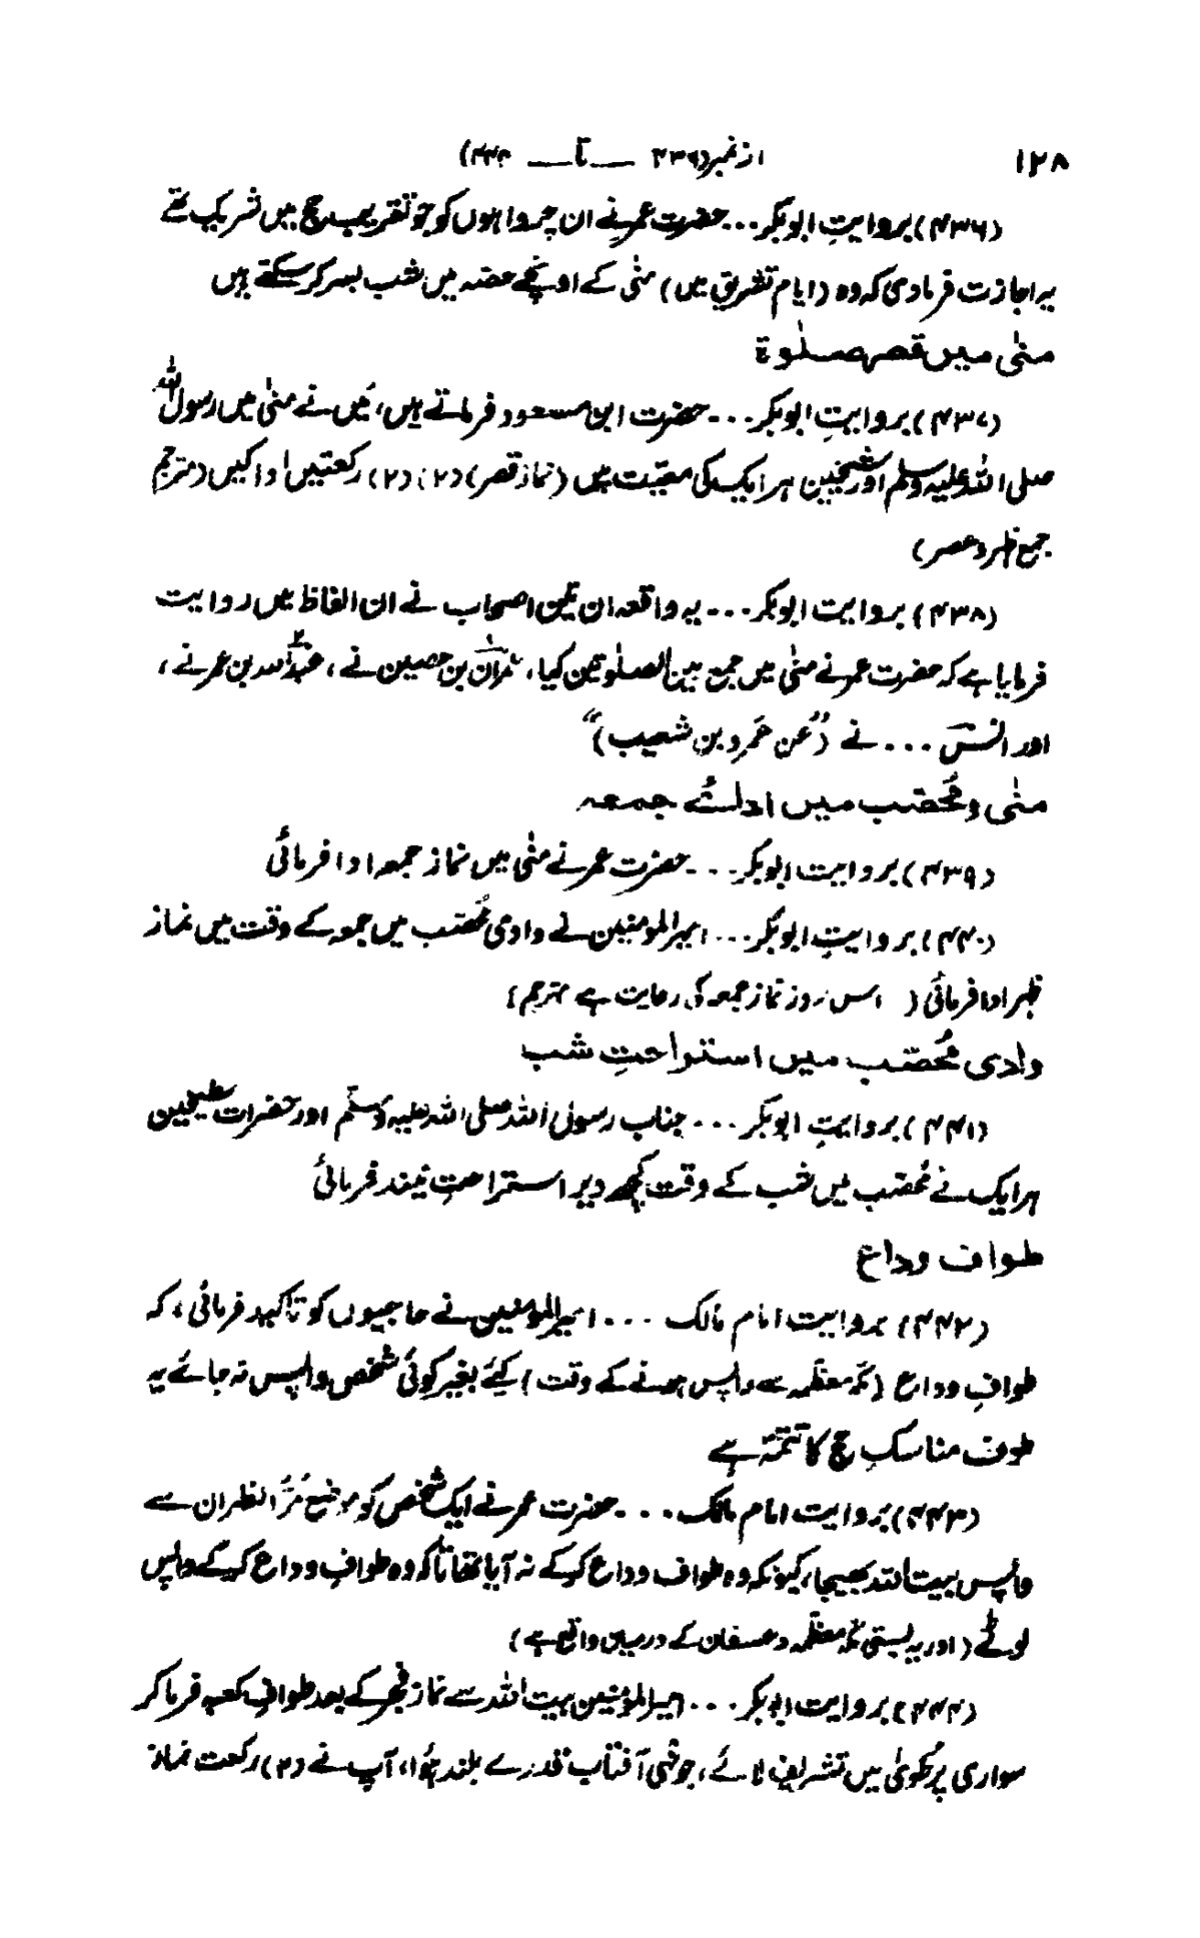 ۱۲۸ از نمبر (۴۳۶ — تا — ۴۴۴)
(۴۳۶) بروایتِ ابوبکر... حضرت عمر نے ان چرواہوں کو جو تقریب حج میں شریک تھے
یہ اجازت فرمادی کہ وہ (ایام تشریق میں) منٰی کے اونچے حصہ میں شب بسر کر سکتے ہیں
منٰی میں قصر صلٰوۃ
(۴۳۷) بروایتِ ابوبکر... حضرت ابن مسعود فرماتے ہیں، میں نے منٰی میں رسول اللہ
صلی اللہ علیہ وسلم اور شیخین ہر ایک کی معیّت میں (نماز قصر) (۲)، (۲) رکعتیں ادا کیں (مترجم
جمع ظہر و عصر)
(۴۳۸) بروایت ابوبکر... یہ واقعہ ان تین اصحاب نے ان الفاظ میں روایت
فرمایا ہے کہ حضرت عمر نے منٰی میں جمع بین الصلوتین کیا، عمران بن حصین نے، عبداللہ بن عمر نے،
اور انس... نے (”عن عمرو بن شعیب)“
منٰی و مُحصّب میں ادائے جمعہ
(۴۳۹) بروایت ابوبکر... حضرت عمر نے منٰی میں نماز جمعہ ادا فرمائی
(۴۴۰) بروایتِ ابوبکر... امیرالمومنین نے وادی مُحصّب میں جمعہ کے وقت میں نماز
ظہر ادا فرمائی ( اس روز نماز جمعہ کی رعایت ہے مترجم)
وادی مُحصّب میں استراحتِ شب
(۴۴۱) بروایتِ ابوبکر... جناب رسول اللہ صلی اللہ علیہ وسلم اور حضرات شیخین
ہر ایک نے مُحصّب میں شب کے وقت کچھ دیر استراحتِ نیند فرمائی
طواف وداع
(۴۴۲) بروایت امام مالک ... امیرالمومنین نے حاجیوں کو تاکید فرمائی، کہ
طوافِ وداع (مکہ معظمہ سے واپس ہونے کے وقت) کیے بغیر کوئی شخص واپس نہ جائے یہ
طوف مناسکِ حج کا تتمّہ ہے
(۴۴۳) بروایت امام مالک... حضرت عمر نے ایک شخص کو موضع مَرُّ الظہران سے
واپس بیت اللہ بھیجا، کیونکہ وہ طواف وداع کر کے نہ آیا تھا تاکہ وہ طوافِ وداع کر کے واپس
لوٹے (اور یہ بستی مکہ معظمہ و عسفان کے درمیان واقع ہے)
(۴۴۴) بروایت ابوبکر... امیرالمومنین بیت اللہ سے نماز فجر کے بعد طوافِ کعبہ فرما کر
سواری پر طویٰ میں تشریف لائے، جونہی آفتاب قدرے بلند ہوا، آپ نے (۲) رکعت نماز